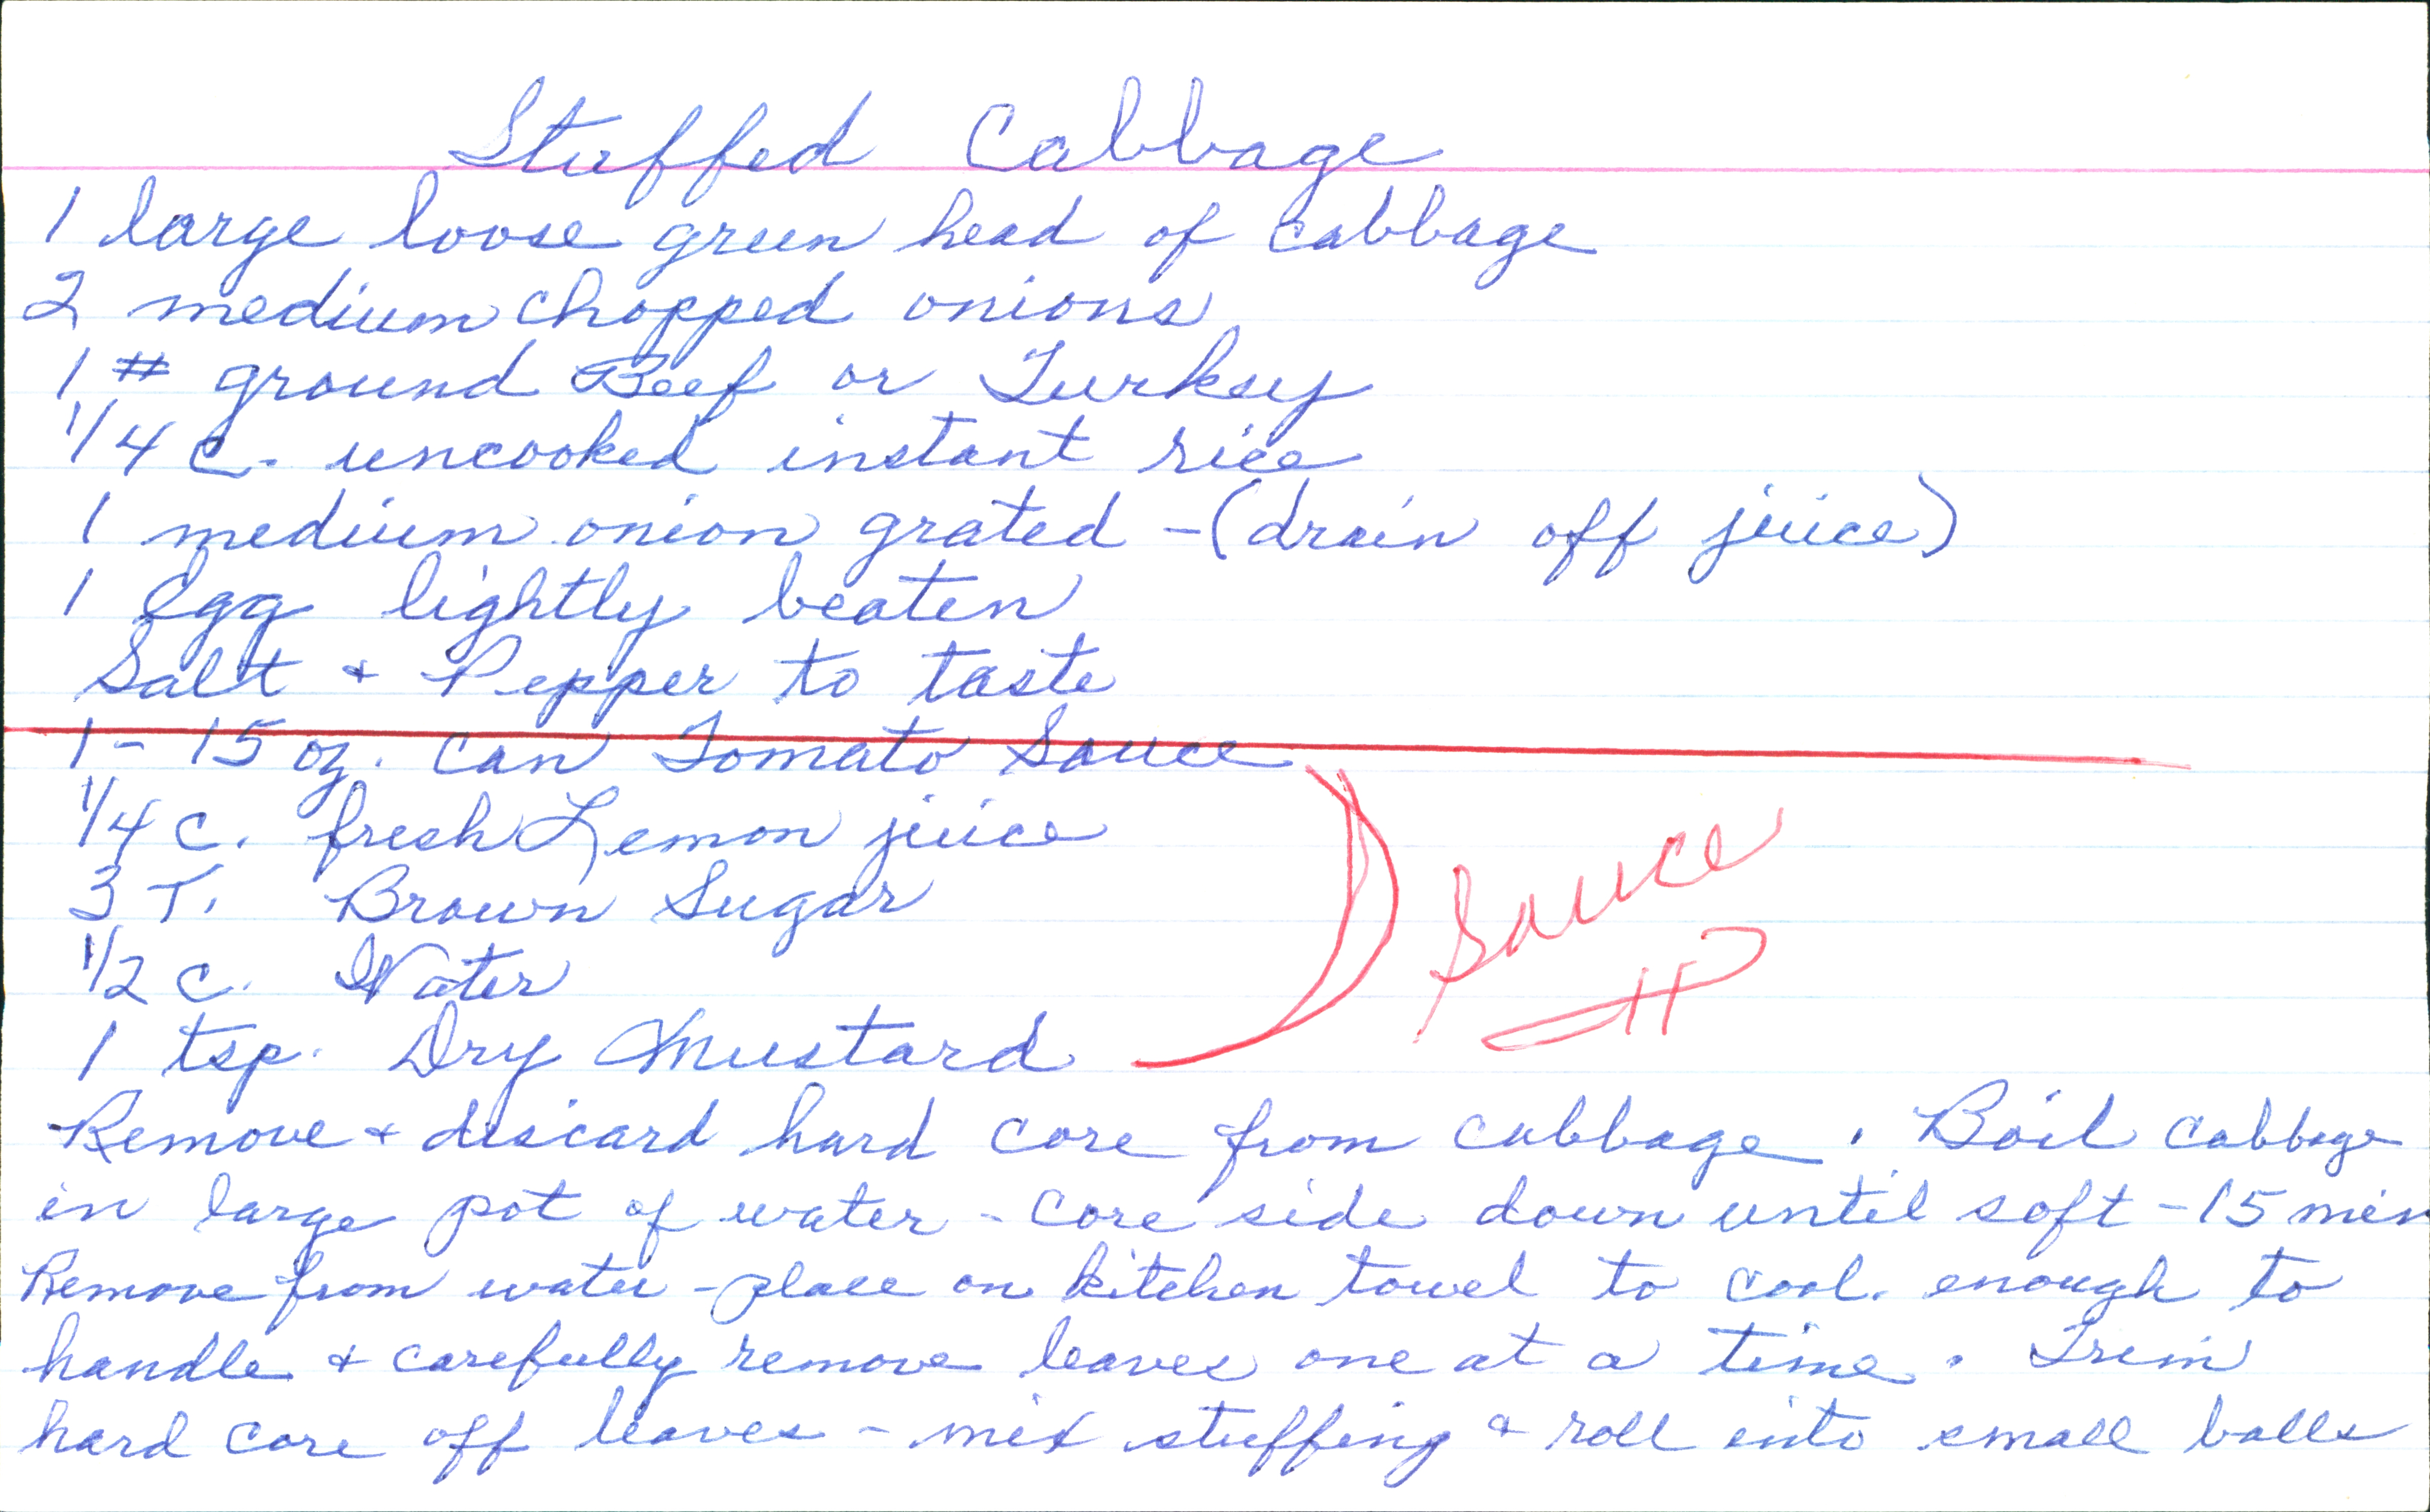 Stuffed Cabbage
1 large loose green head of cabbage
2 medium chopped onions
1 # ground Beef or Turkey
1/4 c. uncooked instant rice
1 medium onion grated - (drain off juice)
1 Egg lightly beaten
Salt + Pepper to taste
1 - 15 oz. can Tomato Sauce
1/4 c. fresh Lemon juice
3 T. Brown Sugar
Sauce
1/2 c. Water
1 tsp. Dry Mustard
Remove + discard hard core from cabbage. Boil cabbage
in large pot of water - core side down until soft - 15 min
Remove from water - place on kitchen towel to cool. enough to
handle + carefully remove leaves one at a time. Trim
hard core off leaves - mix stuffing + roll into small balls